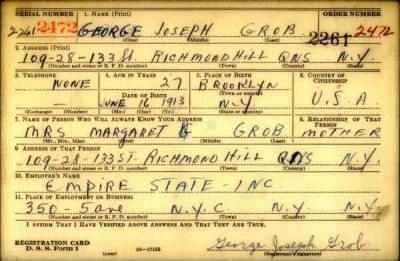 SERIAL NUMBER 1. NAME (Print) ORDER NUMBER
2261 2472 GEORGE JOSEPH GROB 2261 2472
(First) (Middle) (Last)
2. ADDRESS (Print)
109-28-133 St RICHMOND HILL QNS N.Y.
(Number and street or R. F. D. number) (Town) (County) (State)
3. TELEPHONE 4. AGE IN YEARS 5. PLACE OF BIRTH 6. COUNTRY OF CITIZENSHIP
NONE 27 BROOKLYN
DATE OF BIRTH (Town or county)
JUNE 16 1913 N.Y. U.S.A
(Exchange) (Number) (Mo.) (Day) (Yr.) (State or country)
7. NAME OF PERSON WHO WILL ALWAYS KNOW YOUR ADDRESS 8. RELATIONSHIP OF THAT PERSON
MRS MARGARET GROB MOTHER
(Mr., Mrs., Miss) (First) (Middle) (Last)
9. ADDRESS OF THAT PERSON
109-28-133 ST. RICHMOND HILL QNS N.Y.
(Number and street or R. F. D. number) (Town) (County) (State)
10. EMPLOYER'S NAME
EMPIRE STATE INC.
11. PLACE OF EMPLOYMENT OR BUSINESS
350-5 AVE N.Y.C N.Y. N.Y.
(Number and street or R. F. D. number) (Town) (County) (State)
I AFFIRM THAT I HAVE VERIFIED ABOVE ANSWERS AND THAT THEY ARE TRUE.
REGISTRATION CARD
D. S. S. Form 1 (over) 16-17105 George Joseph Grob.
(Registrant's signature)